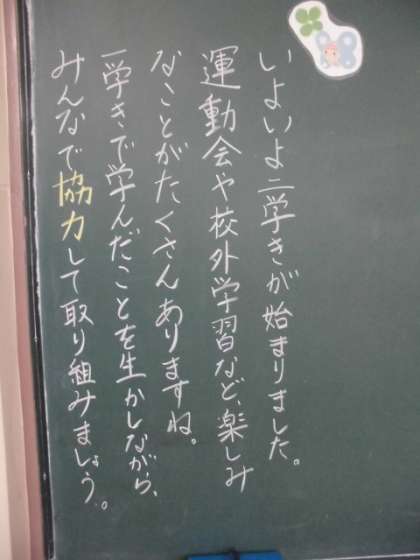 いよいよ二学きが始まりました。
運動会や校外学習など、楽しみ
なことがたくさんありますね。
一学きで学んだことを生かしながら、
みんなで協力して取り組みましょう。